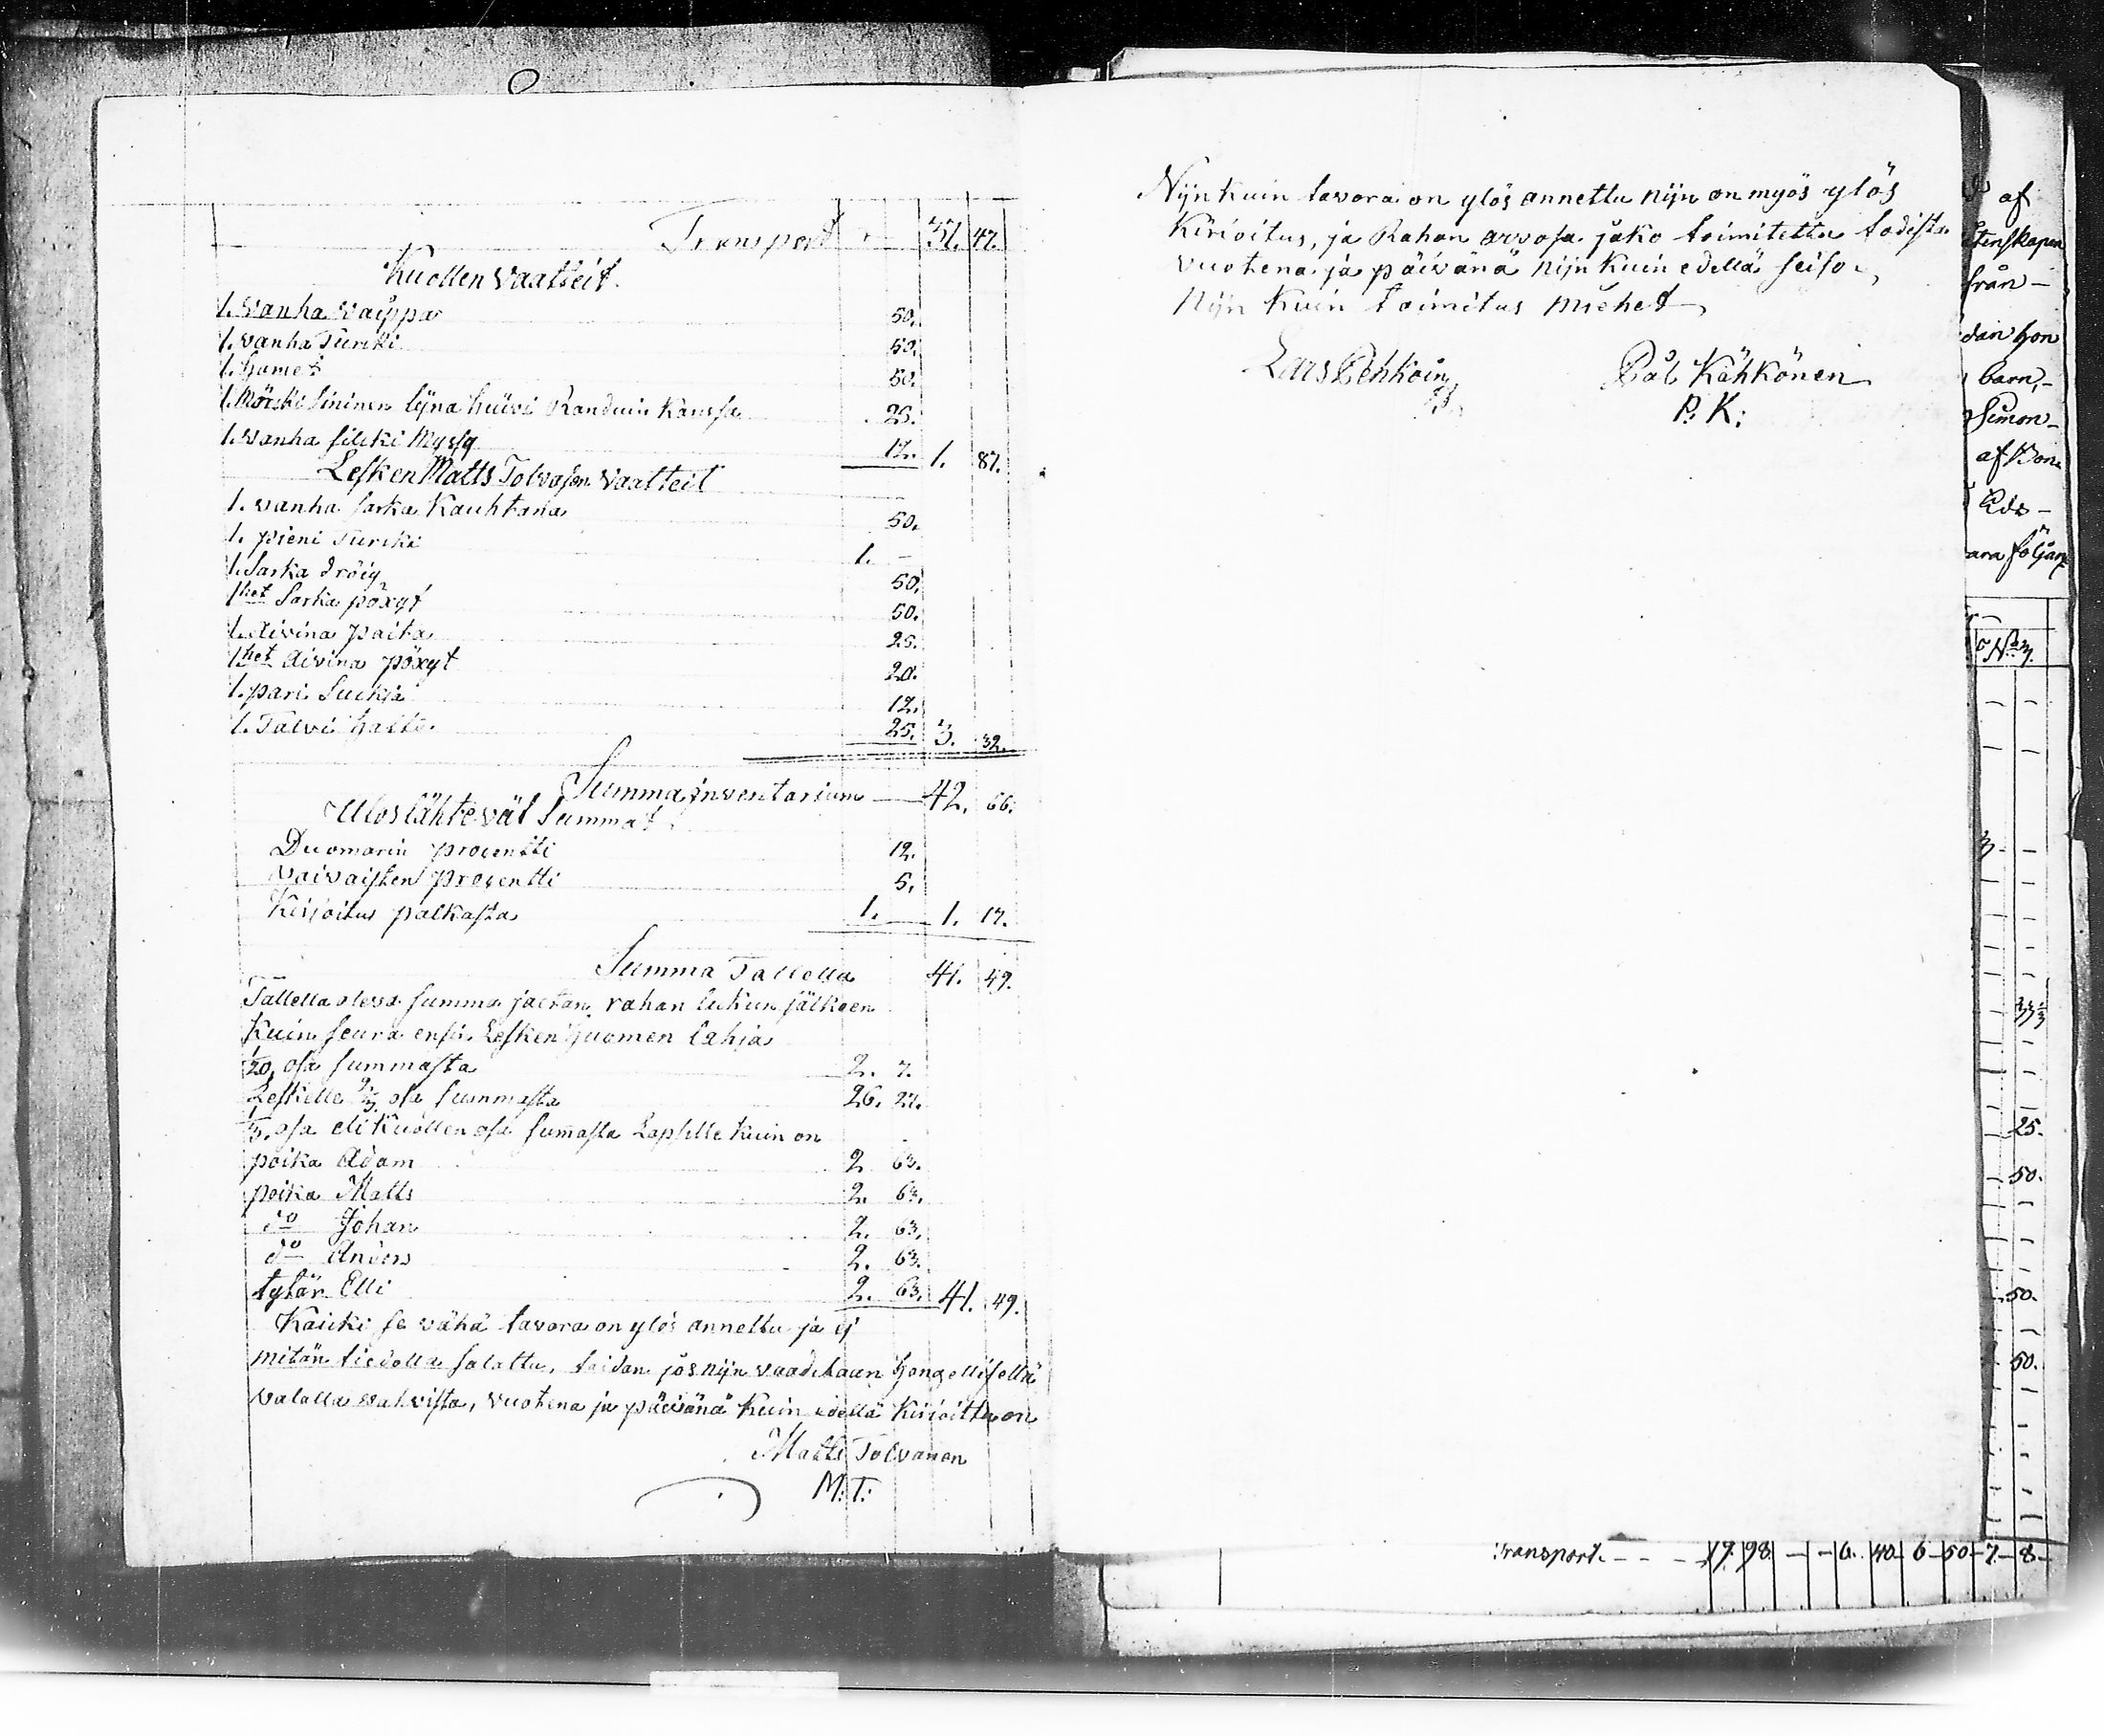 Transport 37. 47.
Kuollen Vaatteit.
1. vanha vaippa 50.
1. vanha Turcki 50.
1. hamet 50.
1. Mörski sininen lijna huivi Randuin Kanssa 25.
1. vanha silcki Myssy 12. 1. 87.
Lesken Matts Tolvasen Vaatteit
1. vanha sarka Kauhtana 50.
1. pieni Turcki 1. –
1. Sarka dröig 50.
1het Sarka pöxyt 50.
1. Aivina paita 25.
1het Aivina pöxyt 20.
1. pari Suckia 12.
1. Talvi hattu 25. 3. 32.
Summa inventarium 42. 66.
Ulos lähteväl Summat
Duomarin procentti 12.
Vaivaisten procentti 5.
Kirjoitus palkasta 1. 1. 17.
Summa Tallella 41. 49.
Tallella oleva summa jaetan rahan lukun jälkeen
Kuin seura ensin Lesken huomen lahja
1/20 osa summasta 2. 7.
Leskelle 2/3 osa summasta 26. 27.
1/3 osa eli Kuollen osa sum̄asta Lapsille kuin on
poika Adam 2. 63.
poika Matts 2. 63.
do Johan 2. 63.
do Anders 2. 63.
tytär Elli 2. 63. 41. 49.
Kaicki se vähä tavara on ylös annettu ja ej
mitän tiedolla salattu, taidan jos nijn vaaditaan hengellisellä
valalla vahvista, vuotena ja päivänä Kuin edellä Kirjoittu on
Matts Tolvanen
M: T:
Nijn kuin tavara on ylös annettu nijn on myös ylös
Kirjoitus, ja Rahan arvosa jako toimitettu todista
vuotena ja päivänä nijn kuin edellä seiso
Nijn Kuin toimitus miehet
Lars Pehkoin Pål Kähkönen
P. K:
af
från –
barn, –
Simon –
af
No 3.
3 –
33 1/3
25.
50.
50.
50.
Transport. – – – 17 98 – – 6. 40 6 50 7 8